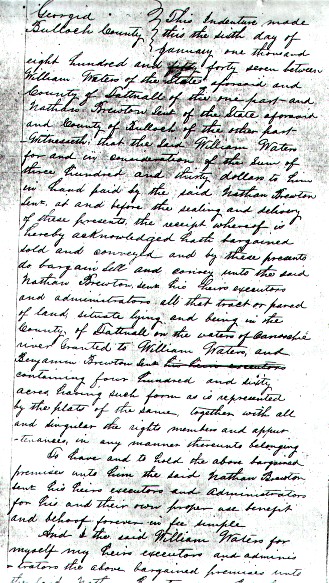 Georgia } This Indenture made
Bulloch County } this the sixth day of
January one thousand
eight hundred and forty seven between
William Waters of the State aforesaid and
County of Tattnall of the one part and
Nathan Brewton Senr of the State aforesaid
and County of Bulloch of the other part
Witnesseth, that the said William Waters
for and in consideration of the sum of
three hundred and thirty dollars to him
in hand paid by the said Nathan Brewton
Senr. at and before the sealing and delivery
of these presents, the receipt whereof is
hereby acknowledged hath bargained
sold and conveyed and by these presents
do bargain sell and convey unto the said
Nathan Brewton, senr his heirs executors
and administrators all that tract or parcel
of land, situate lying and being in the
County, of Tattnall on the waters of Canoochie
river Granted to William Waters, and
Benjamin Brewton Senr his heirs executors
containing four hundred and sixty
acres, having such form as is represented
by the plats of the same, together with all
and singular the rights members and appur
-tenances, in any manner thereunto belonging.
To have and to hold the above bargained
premises unto him the said Nathan Brewton
senr his heirs executors and Administrators
for his and their own proper use benefit
and behoof forever in fee simple
And I the said William Waters for
myself my heirs executors and adminis
-trators the above bargained premises unto
the said Nathan Brewton